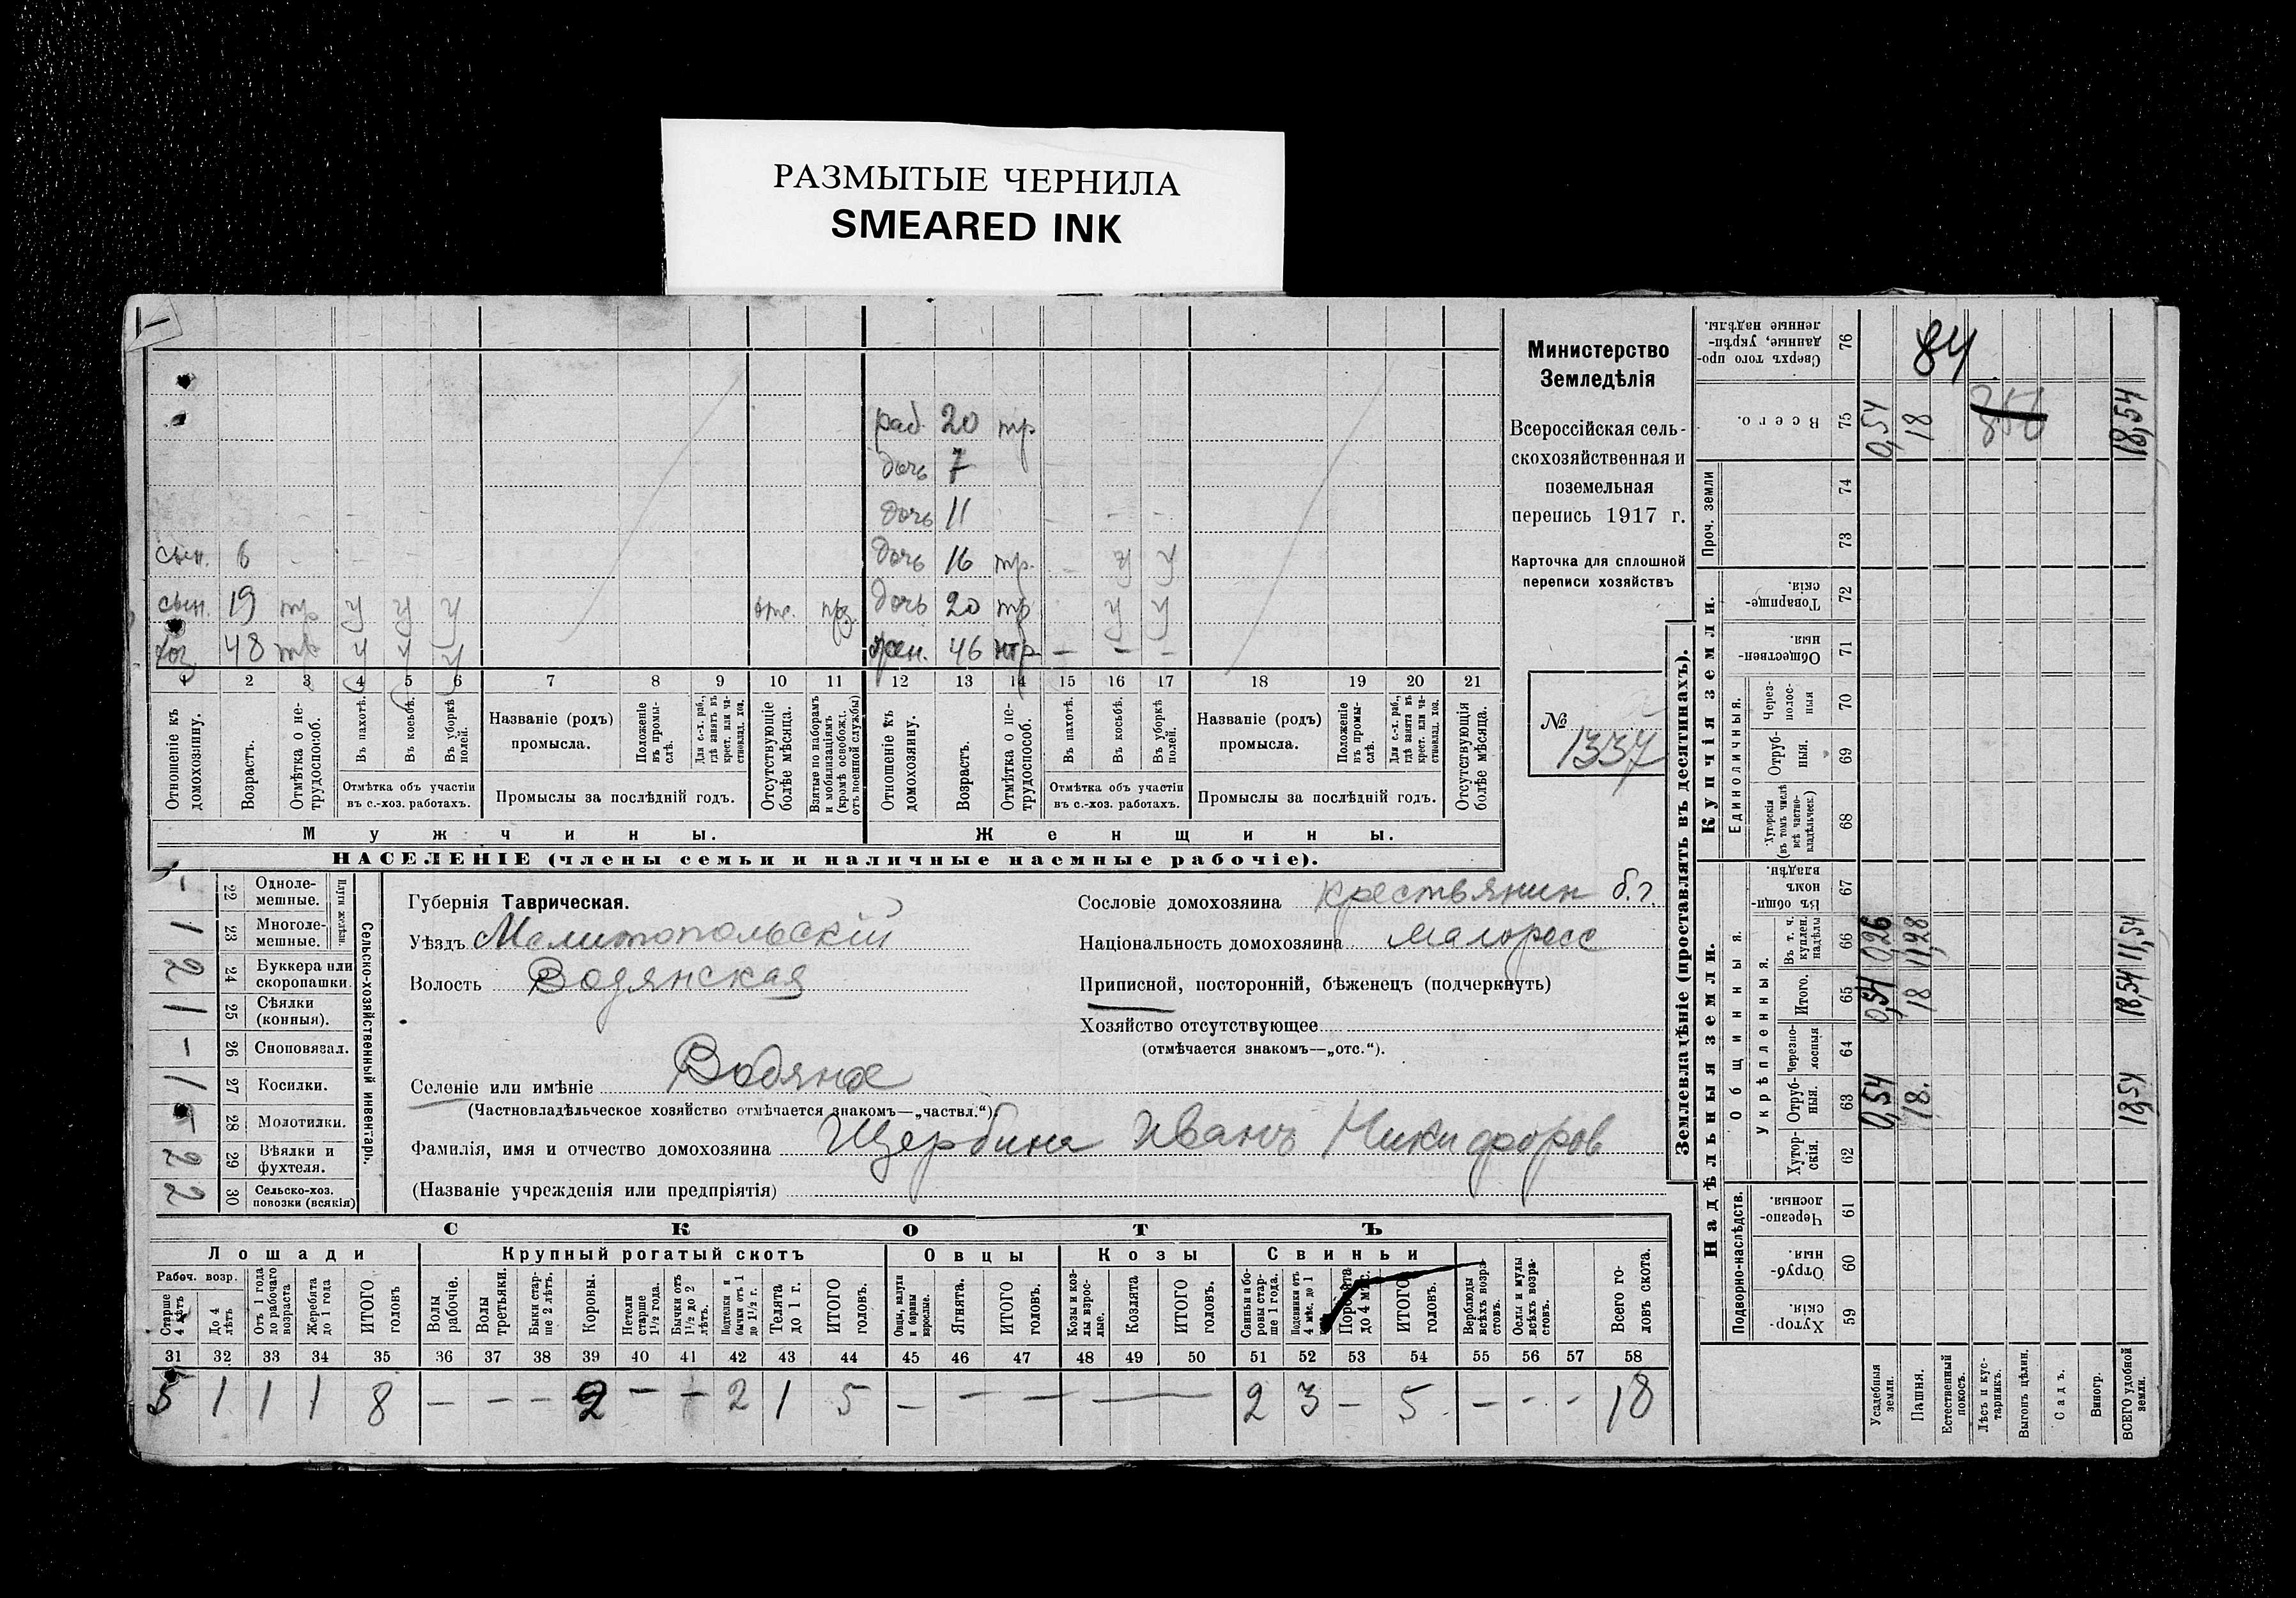 РАЗМЫТЫЕ ЧЕРНИЛА
SMEARED INK
раб. 20 тр
дочь 7
дочь 11
сын. 6 дочь 16 тр. – у у
сын. 19 тр у у у отс. дочь 20 тр у у
хоз 48 тр у у у жен. 46 нтр – – –
1 2 3 4 5 6 7 8 9 10 11 12 13 14 15 16 17 18 19 20 21
Отношеніе къ домохозяину.
Возрастъ.
Отмѣтка о не-трудоспособ.
Въ пахотѣ.
Въ косьбѣ.
Въ уборкѣ полей.
Отмѣтка объ участіи въ с.-хоз. работахъ.
Названіе (родъ) промысла.
Положеніе въ промы-слѣ.
Для с.-х. раб., гдѣ занятъ въ крест. или ча-стновлад. хоз.
Промыслы за послѣдній годъ.
Отсутствующіе болѣе мѣсяца.
Взятые по наборамъ и мобилизаціямъ (кромѣ освобожд. отъ военной службы)
Отношеніе къ домохозяину.
Возрастъ.
Отмѣтка о не-трудоспособ.
Въ пахотѣ.
Въ косьбѣ.
Въ уборкѣ полей.
Отмѣтка объ участіи въ с.-хоз. работахъ.
Названіе (родъ) промысла.
Положеніе въ промы-слѣ.
Для с.-х. раб., гдѣ занята въ крест. или ча-стновлад. хоз.
Промыслы за послѣдній годъ.
Отсутствующія болѣе мѣсяца.
Мужчины. Женщины.
НАСЕЛЕНІЕ (члены семьи и наличные наемные рабочіе).
Министерство
Земледѣлія
Всероссійская сель-
скохозяйственная и
поземельная
перепись 1917 г.
Карточка для сплошной
переписи хозяйствъ
№ 1337
– 22 Одноле-мешные.
1 23 Многоле-мешные.
Плуги желѣзн.
2 24 Буккера или скоропашки.
1 25 Сѣялки (конныя).
– 26 Сноповязал.
1 27 Косилки.
– 28 Молотилки.
2 29 Вѣялки и фухтеля.
2 30 Сельско-хоз. повозки (всякія)
Сельско-хозяйственный инвентарь.
Губернія Таврическая.
Уѣздъ Мелитопольскій
Волость Водянская
Селеніе или имѣніе Водяное
(Частновладѣльческое хозяйство отмѣчается знакомъ—„частвл.“).
Фамилія, имя и отчество домохозяина Щербина Иванъ Никифоров
(Названіе учрежденія или предпріятія)
Сословіе домохозяина крестьянин б. г.
Національность домохозяина малоросс
Приписной, посторонній, бѣженецъ (подчеркнуть)
Хозяйство отсутствующее
(отмѣчается знакомъ—„отс.“).
СКОТЪ
Лошади Крупный рогатый скотъ Овцы Козы Свиньи
Рабоч. возр.
Старше 4 лѣтъ
До 4 лѣтъ
Отъ 1 года до рабочаго возраста
Жеребята до 1 года
ИТОГО головъ
Волы рабочіе.
Волы третьяки.
Быки стар-ше 2 лѣтъ.
Коровы.
Нетели старше 1½ года.
Бычки отъ 1½ до 2 лѣтъ.
Подтелки и бычки отъ 1 до 1½ г.
Телята до 1 г.
ИТОГО головъ.
Овцы, валухи и бараны взрослые.
Ягнята.
ИТОГО головъ.
Козы и коз-лы взрос-лые.
Козлята
ИТОГО головъ.
Свиньи и бо-ровы стар-ше 1 года.
Подсвинки отъ 4 мѣс. до 1
Поросята до 4 мѣс.
ИТОГО головъ.
Верблюды всѣхъ возра-стовъ.
Ослы и мулы всѣхъ возра-стовъ.
Всего го-ловъ скота.
31 32 33 34 35 36 37 38 39 40 41 42 43 44 45 46 47 48 49 50 51 52 53 54 55 56 57 58
5 1 1 1 8 – – – 2 – – 2 1 5 – – – – 2 3 – 5 – – – 18
Землевладѣніе (проставлять въ десятинахъ).
Надѣльныя земли. Купчія земли. Проч. земли
Подворно-наслѣдств. Общинныя. Укрѣпленныя. Единоличныя.
Хутор-скія. 59
Отруб-ныя. 60
Черезпо-лосныя. 61
Хутор-скія. 62
Отруб-ныя. 63
Черезпо-лосныя 64
Итого. 65
Въ т. ч. куплен. надѣлы 66
Въ общи-номъ владѣн. 67
Хуторскія (въ томъ числѣ всѣ частно-владѣльческ.) 68
Отруб-ныя. 69
Через-полос-ныя 70
Обществен-ныя. 71
Товарище-скія. 72
73
74
Всего. 75
Сверхъ того про-данные, укрѣп-ленные надѣлы. 76
Усадебныя земли. 0,54 0,54 0,26 0,54
Пашня. 18. 18 11,28 18
84
Естественный покосъ.
Лѣсъ и кус-тарникъ.
Выгонъ цѣлин.
Садъ.
Виногр.
ВСЕГО удобной земли. 18,54 18,54 11,54 18,54